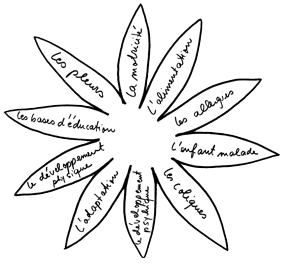 La motricité
L'alimentation
les allergies
L'enfant malade
les coliques
le développement
psychique
L'adaptation
le développement
physique
les bases d'éducation
les pleurs